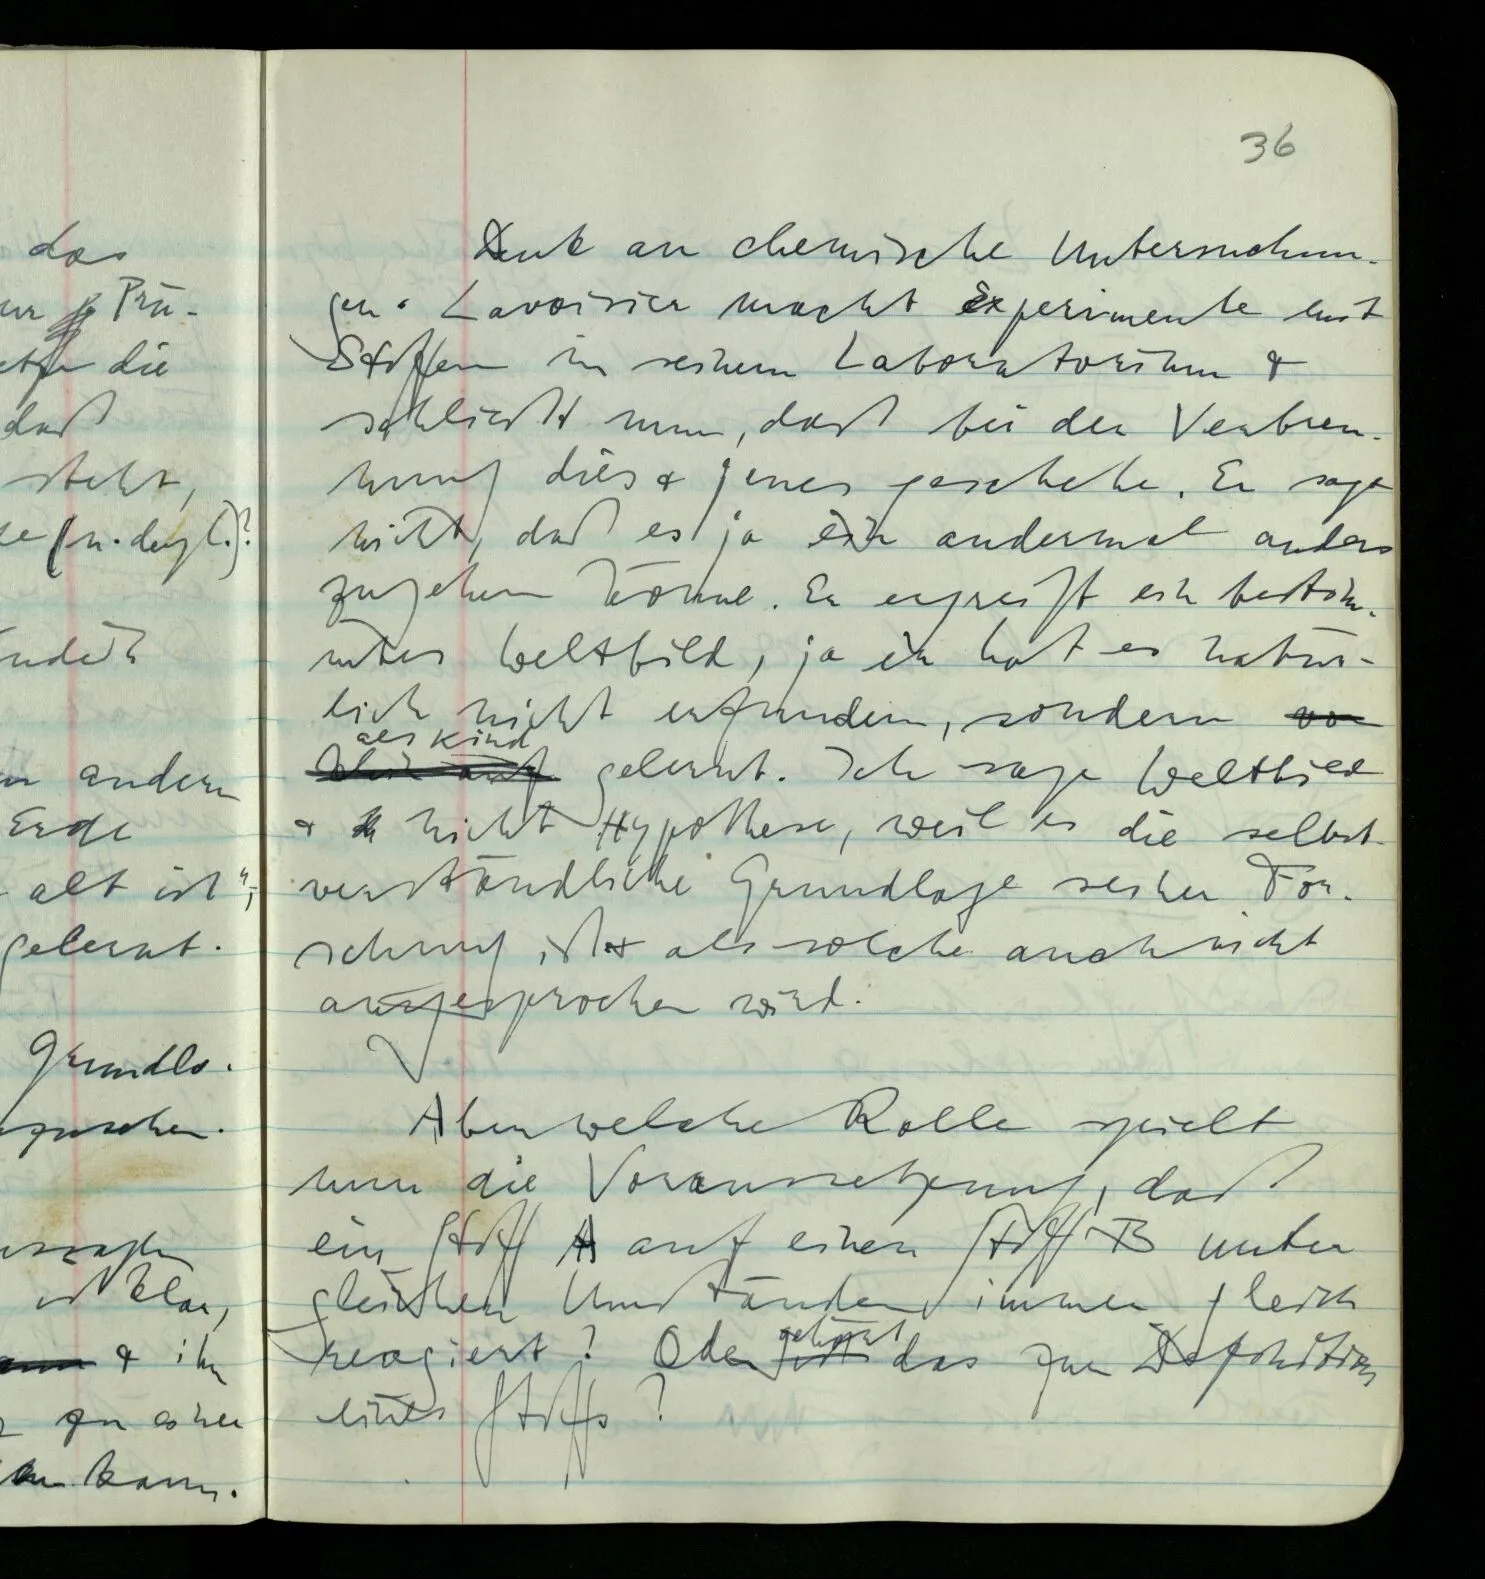 das
Prü-
die
daß
steht,
(u. dergl.)?
andern
Erde
alt ist";
gelernt.
Grundla-
ist klar,
& ihn
zu einer
kann.
36
Denk an chemische Untersuchun-
gen. Lavoisier macht Experimente mit
Stoffen in seinem Laboratorium &
schließt nun, daß bei der Verbren-
nung dies & jenes geschehe. Er sagt
nicht, daß es ja ein andermal anders
zugehen könne. Er ergreift ein bestim-
mtes Weltbild, ja er hat es natür-
lich nicht erfunden, sondern
als Kind
gelernt. Ich sage Weltbild
& nicht Hypothese, weil es die selbst-
verständliche Grundlage seiner For-
schung ist & als solche auch nicht
ausgesprochen wird.
Aber welche Rolle spielt
nun die Voraussetzung, daß
ein Stoff A auf einen Stoff B unter
gleichen Umständen immer gleich
gehört
reagiert? Oder das zur Definition
eines Stoffs?